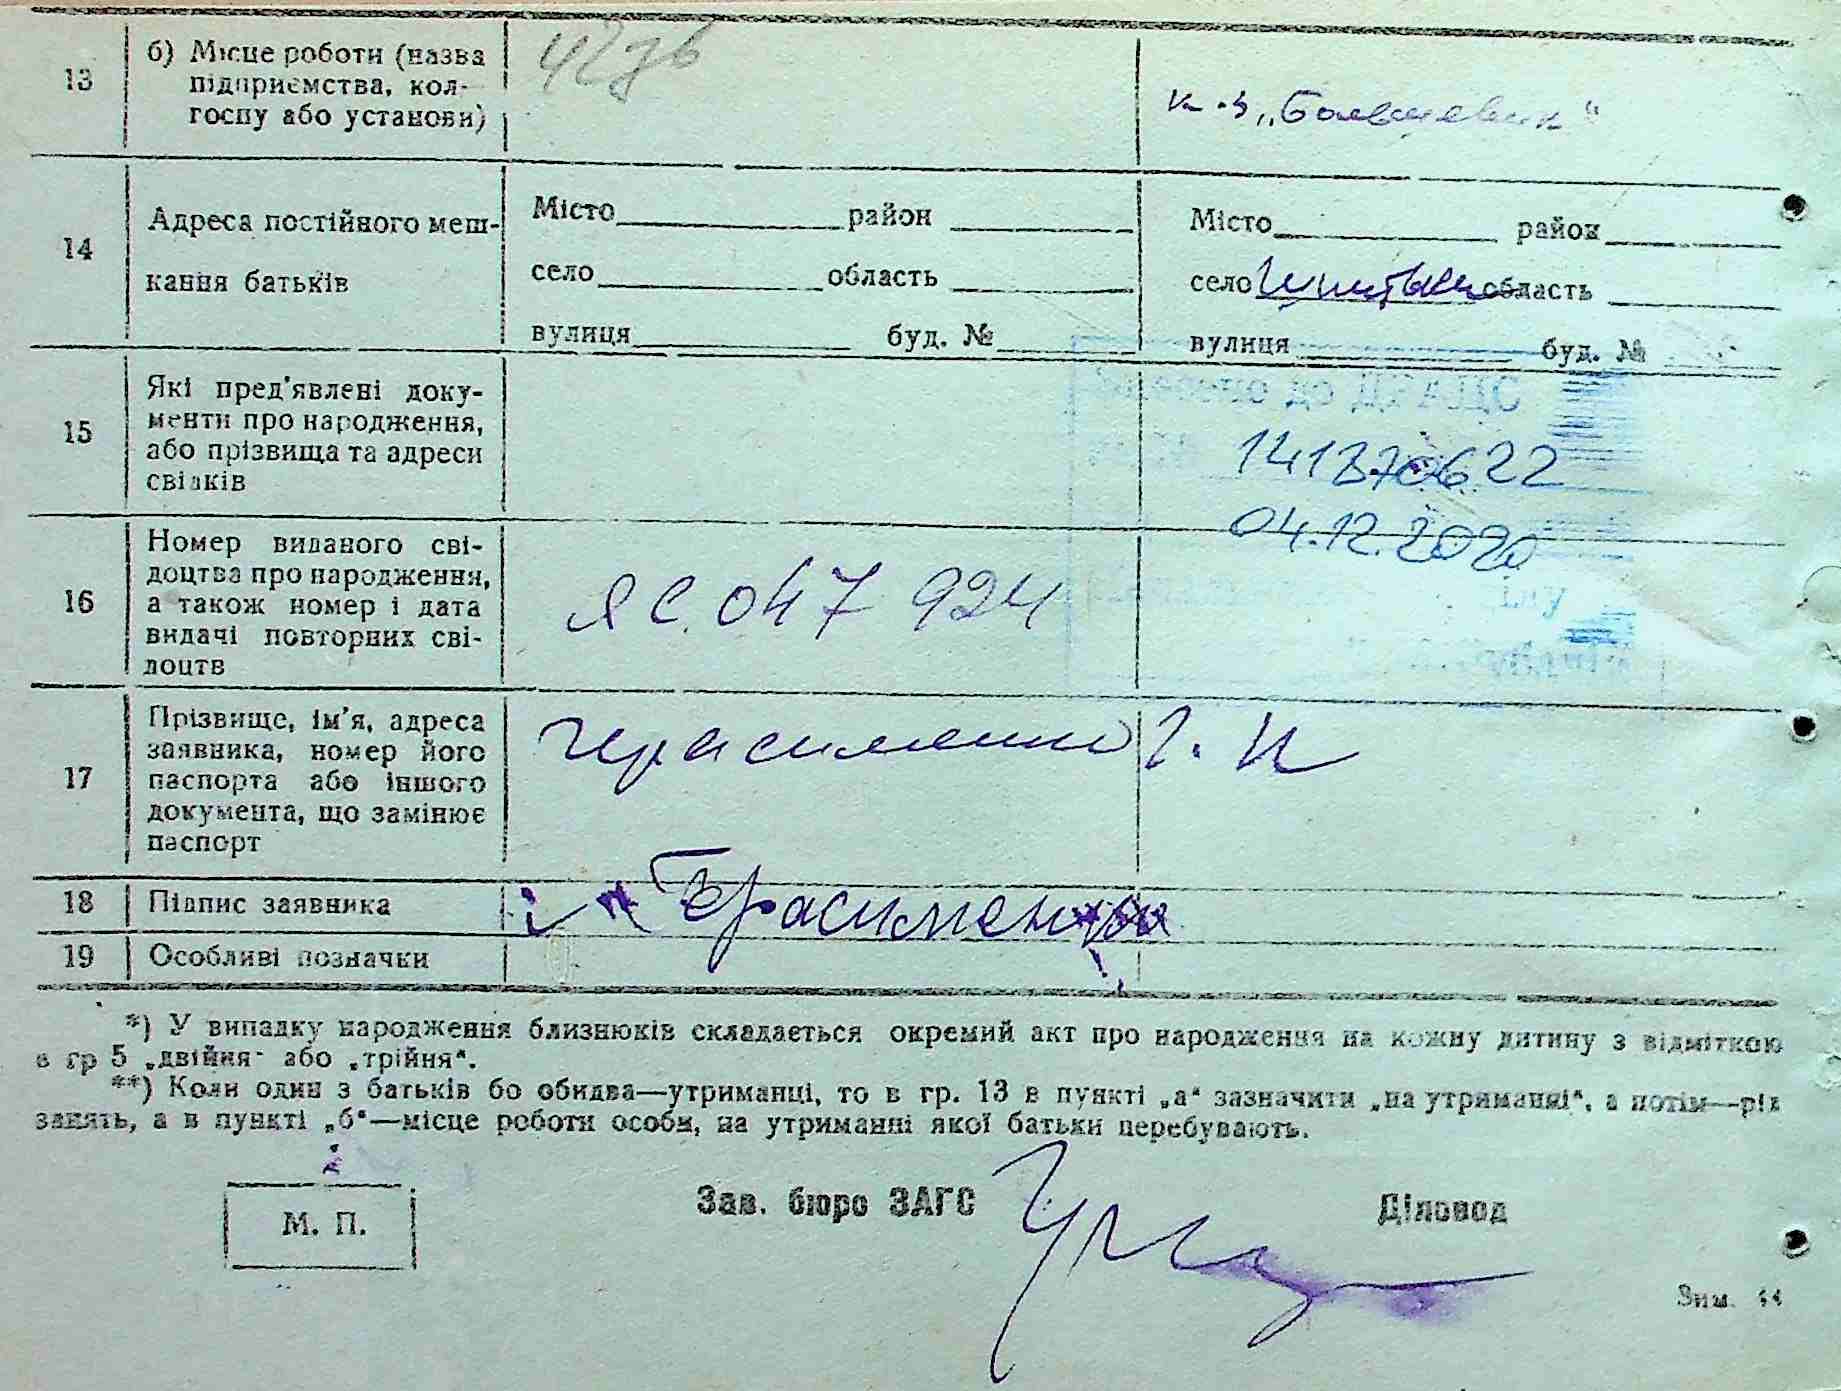 13
б) Місце роботи (назва
підприємства, кол-
госпу або установи)
к-з „Большевик“
14
Адреса постійного меш-
кання батьків
Місто район
село область
вулиця буд. №
Місто район
село область
вулиця буд. №
15
Які пред'явлені доку-
менти про народження,
або прізвища та адреси
свідків
до ДРАЦС
141370622
04.12.2020
16
Номер виданого сві-
доцтва про народження,
а також номер і дата
видачі повторних сві-
доцтв
ЯС 047924
17
Прізвище, ім'я, адреса
заявника, номер його
паспорта або іншого
документа, що замінює
паспорт
Герасименко Г. И
18
Підпис заявника
19
Особливі позначки
*) У випадку народження близнюків складається окремий акт про народження на кожну дитину з відміткою
в гр 5 „двійня“ або „трійня“.
**) Коли один з батьків бо обидва—утриманці, то в гр. 13 в пункті „а“ зазначити „на утриманні“, а потім—рід
занять, а в пункті „б“—місце роботи особи, на утриманні якої батьки перебувають.
М. П.
Зав. бюро ЗАГС
Діловод
Зим. 44